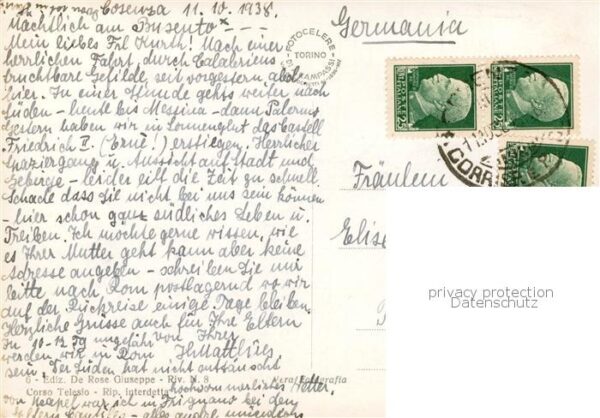 Cosenza 11.10.1938.
Nächtlich am Busento
Mein liebes Frl Kurth! Nach einer
herrlichen Fahrt durch Calabriens
fruchtbare Gefilde seit vorgestern abd
hier. In einer Stunde gehts weiter nach
Süden - heute bis Messina - dann Palermo
Gestern haben wir in Sonnenglut das Castell
Friedrich II. erstiegen. Herrlicher
Spaziergang u. Aussicht auf Stadt und
Gebirge - leider eilt die Zeit zu schnell
Schade dass Sie nicht bei uns sein können
- hier schon ganz südliches Leben u.
Treiben. Ich möchte gerne wissen, wie
es Ihrer Mutter geht kann aber keine
Adresse angeben - schreiben Sie mir
bitte nach Rom postlagernd wo wir
auf der Rückreise einige Tage bleiben.
Herzliche Grüsse auch für Ihre Eltern
In 10-12 Tg ungefähr von Ihrer
werden wir in Rom HMatthies
sein. Der Süden hat nicht enttäuscht
6 - Ediz. De Rose Giuseppe - Riv. N. 8
Corso Telesio - Rip. interdetta
hochsommerliches Wetter,
von Neapel war ich in Frignano bei dem
Germania
FOTOCELERE
TORINO
Fräulein
Elis
privacy protection
Datenschutz